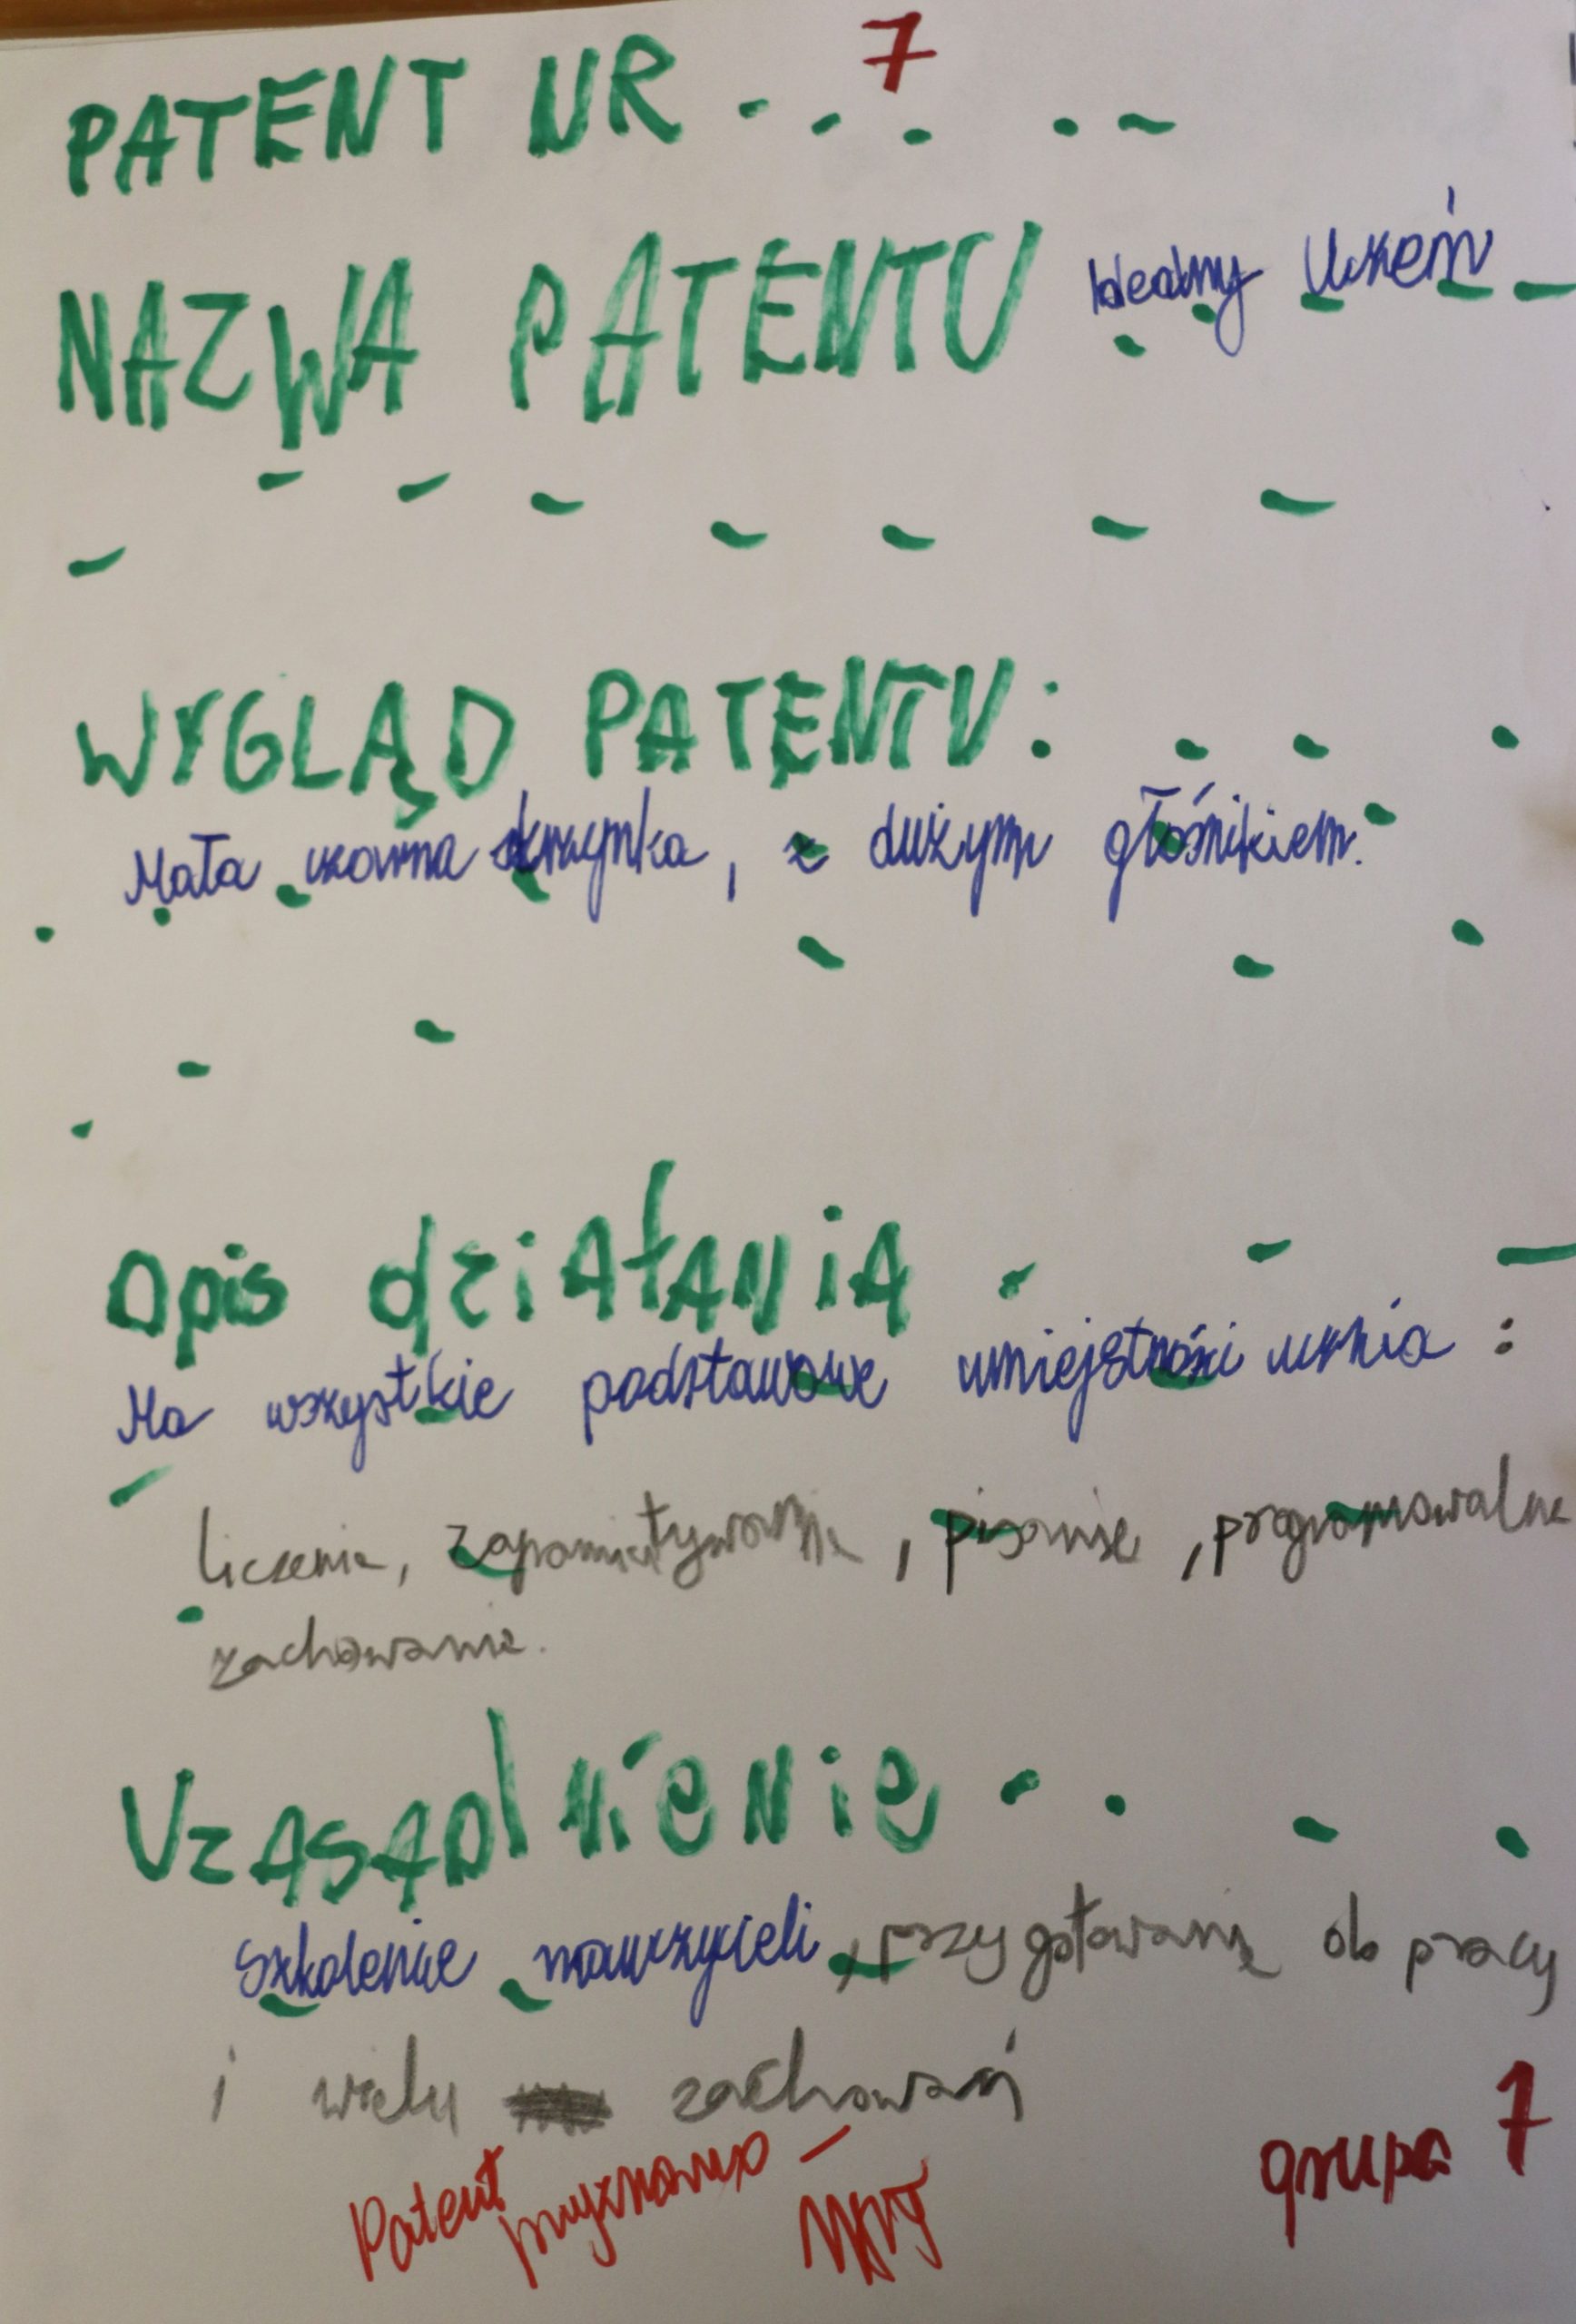 PATENT NR 7
NAZWA PATENTU Idealny Uczeń
WYGLĄD PATENTU:
Mała czarna skrzynka, z dużym głośnikiem.
Opis działania
Ma wszystkie podstawowe umiejętności ucznia :
liczenie, zapamiętywanie, pisanie, programowalne
zachowanie.
Uzasadnienie
szkolenie nauczycieli, przygotowanie do pracy
i wielu zachowań
Patent przyznano -
grupa 7